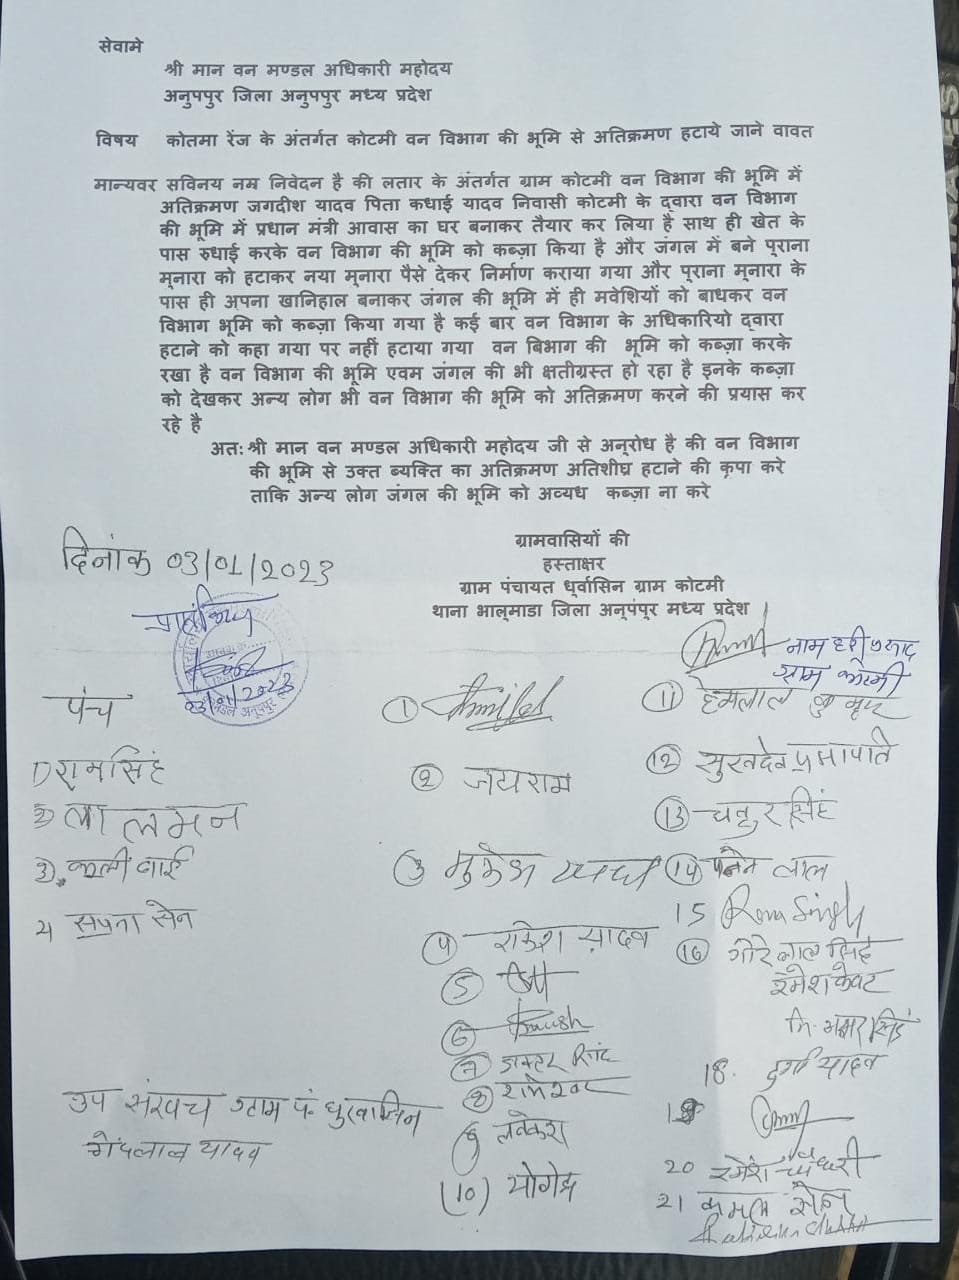 सेवामे
श्री मान वन मण्डल अधिकारी महोदय
अनुपपुर जिला अनुपपुर मध्य प्रदेश
विषय कोतमा रेंज के अंतर्गत कोटमी वन विभाग की भूमि से अतिक्रमण हटाये जाने वावत
मान्यवर सविनय नम्र निवेदन है की लतार के अंतर्गत ग्राम कोटमी वन विभाग की भूमि में
अतिक्रमण जगदीश यादव पिता कधाई यादव निवासी कोटमी के द्वारा वन विभाग
की भूमि में प्रधान मंत्री आवास का घर बनाकर तैयार कर लिया है साथ ही खेत के
पास रुधाई करके वन विभाग की भूमि को कब्ज़ा किया है और जंगल में बने पूराना
मूनारा को हटाकर नया मूनारा पैसे देकर निर्माण कराया गया और पूराना मूनारा के
पास ही अपना खानिहाल बनाकर जंगल की भूमि में ही मवेशियों को बाधकर वन
विभाग भूमि को कब्ज़ा किया गया है कई बार वन विभाग के अधिकारियो द्वारा
हटाने को कहा गया पर नहीं हटाया गया वन बिभाग की भूमि को कब्ज़ा करके
रखा है वन विभाग की भूमि एवम जंगल की भी क्षतीग्रस्त हो रहा है इनके कब्ज़ा
को देखकर अन्य लोग भी वन विभाग की भूमि को अतिक्रमण करने की प्रयास कर
रहे है
अत: श्री मान वन मण्डल अधिकारी महोदय जी से अनूरोध है की वन विभाग
की भूमि से उक्त ब्यक्ति का अतिक्रमण अतिशीघ्र हटाने की कृपा करे
ताकि अन्य लोग जंगल की भूमि को अव्यध कब्ज़ा ना करे
ग्रामवासियों की
हस्ताक्षर
ग्राम पंचायत धूर्वासिन ग्राम कोटमी
थाना भालूमाडा जिला अनूपंपूर मध्य प्रदेश
दिनांक 03/01/2023
03/01/2023
अनूपपुर
नाम हरी प्रसाद
ग्राम कोटमी
पंच
1) रामसिंह
2) लालमन
3) कली बाई
4 सपना सेन
उप संरपच ग्राम पं धुरवासिन
गेंदलाल यादव
1
2 जयराम
3 मुकेश यादव
4 राकेश यादव
5
6
7 डाक्टर सिंह
8 रामेश्वर
9 लवकेश
(10) योगेन्द्र
11 हेमलाल
12 सुखदेव प्रजापति
13 चतुर सिंह
14 लाल
15 Ram Singh
16 गोरे लाल सिंह
रमेश केवट
18. दुर्गा यादव
19
20 रमेश चौधरी
21 कमल सेन